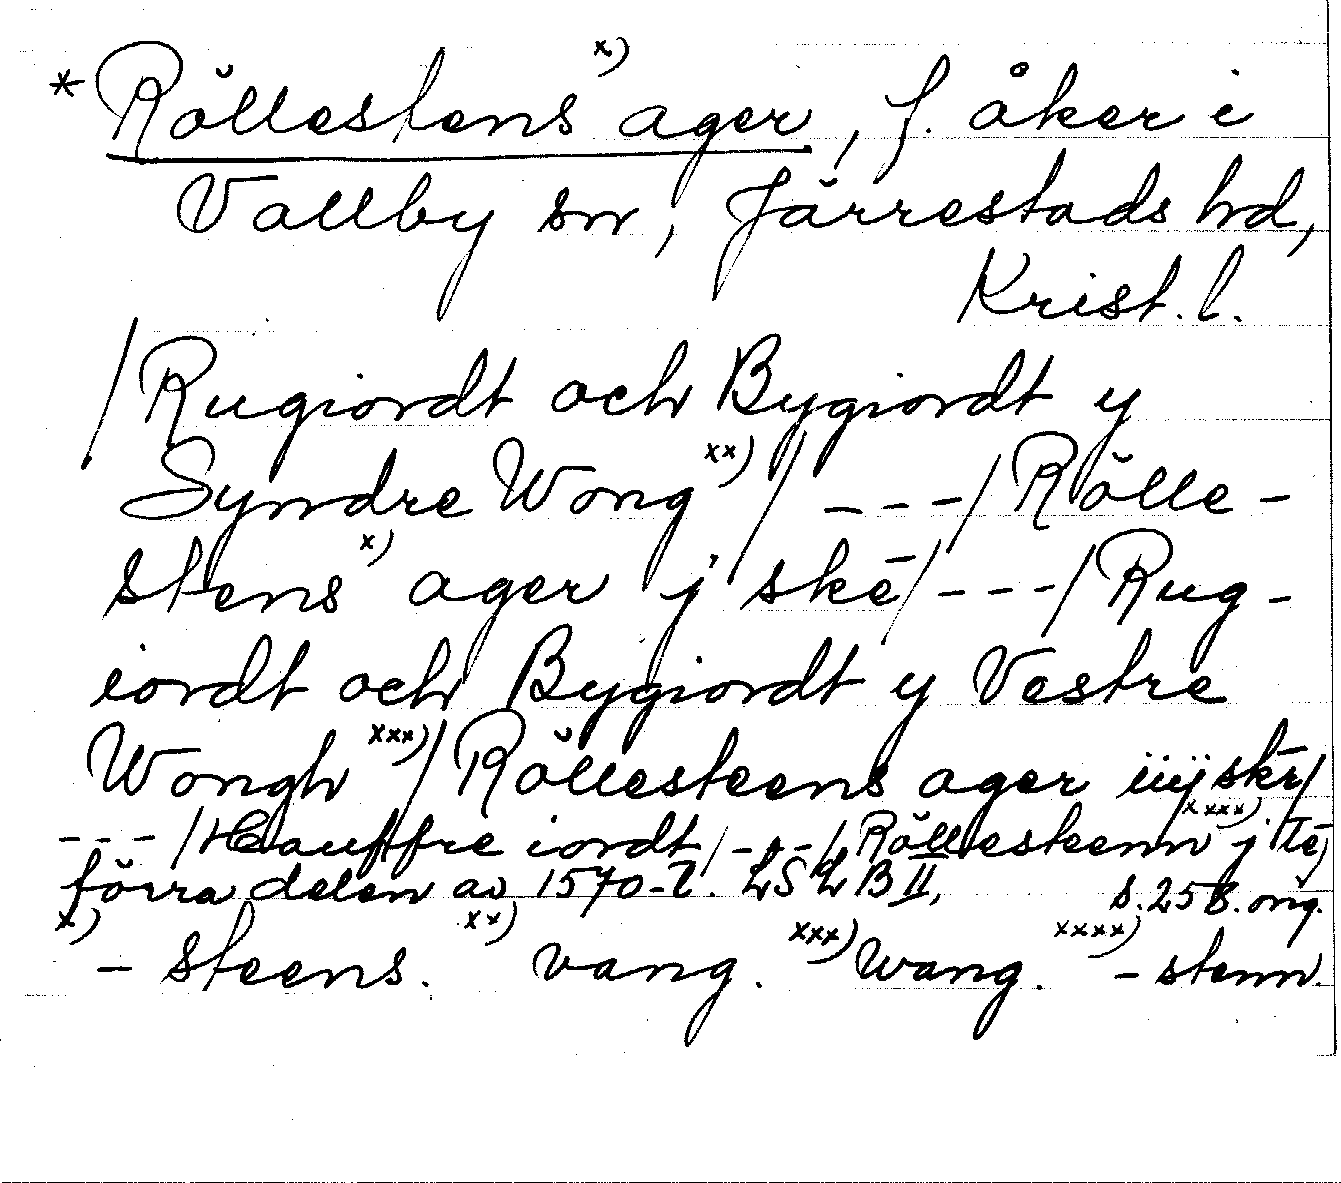 * Röllestens x) ager, f. åker i
Vallby sn, Järrestads hd,
Krist. l.
/Rugiordt och Bygiordt y
Syndre Wong xx)/ ---/Rölle-
stens x) ager j skē/---/Rug-
iordt och Bygiordt y Vestre
Wongh xxx)/Röllesteens ager iiij skr̄/
---/Hauffre iordt/---/Röllesteenn xxxx) j tē/
förra delen av 1570-t. LSLB II, s. 258. orig.
x) - steens. xx) vang. xxx) Wang. xxxx) - stenn.